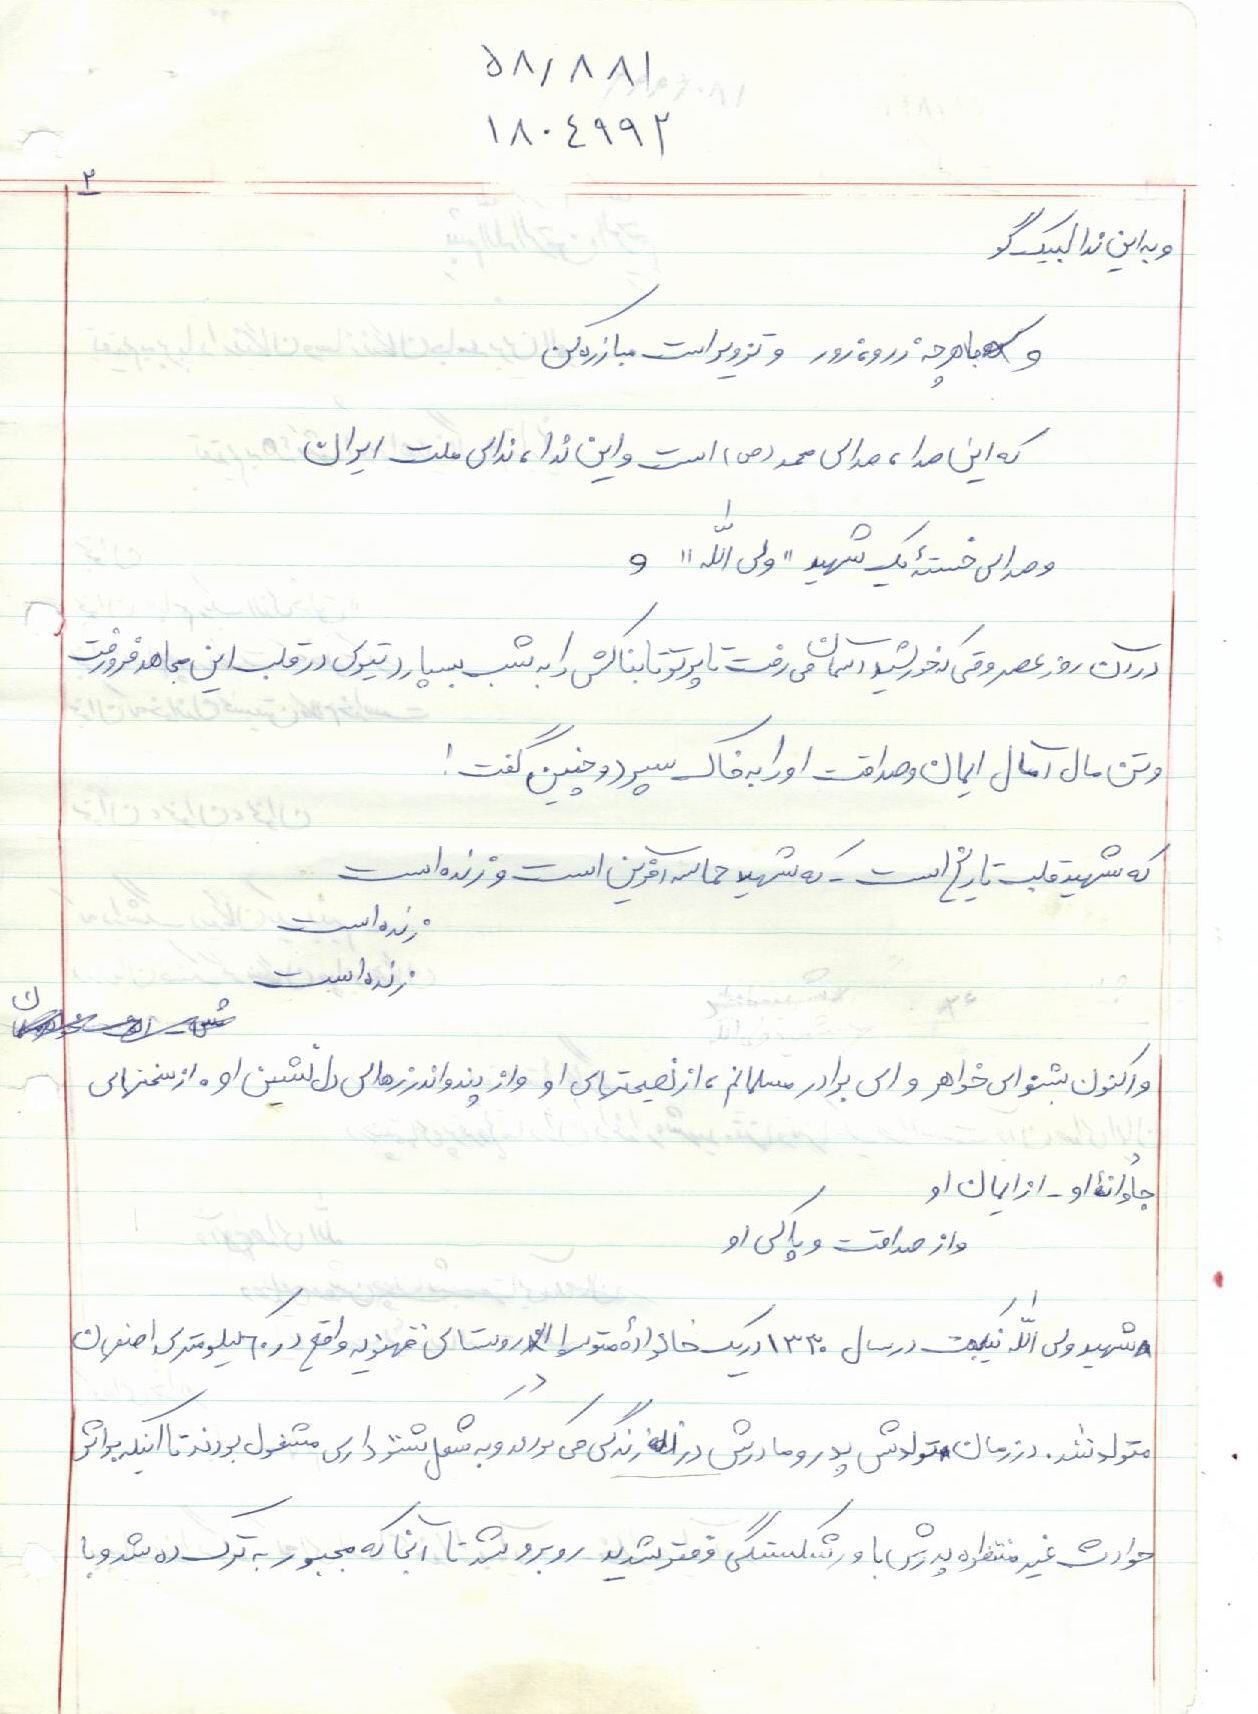 ۵۸/۸۸۱
۱۸۰٤۹۹۲
۲
و به این ندا لبیک گو
و با هرچه زر و زور و تزویر است مبارزه کن
که این صدا، صدای محمد (ص) است و این ندا، ندای ملت ایران
و صدای خستهٔ یک شهید "ولی الله" و
در آن روز عصر وقتی که خورشید آسمان می رفت تا پرتو تابناکش را به شب بسپارد تیری در قلب این مجاهد فرو رفت
و تن مال آمال ایمان و صداقت او را به خاک سپرد و چنین گفت!
که شهید قلب تاریخ است - که شهید حماسه آفرین است و زنده است
زنده است
زنده است
واکنون بشنو ای خواهر و ای برادر مسلمانم، از نصیحتهای او و از پند و اندرزهای دل نشین او، از سخنهای
جاودانهٔ او - از ایمان او
و از صداقت و پاکی او
شهید ولی الله نیکبخت در سال ۱۳۳۰ در یک خانوادهٔ متوسط در روستای قهنویه واقع در ۶۰ کیلومتری اصفهان
متولد شد. در زمان تولدش پدر و مادرش در زندگی می کردند و به شغل شتر داری مشغول بودند تا اینکه بر اثر
حوادث غیر منتظره پدرش با ورشکستگی و فقر شدید روبرو شد تا آنجا که مجبور به ترک ده شد و با